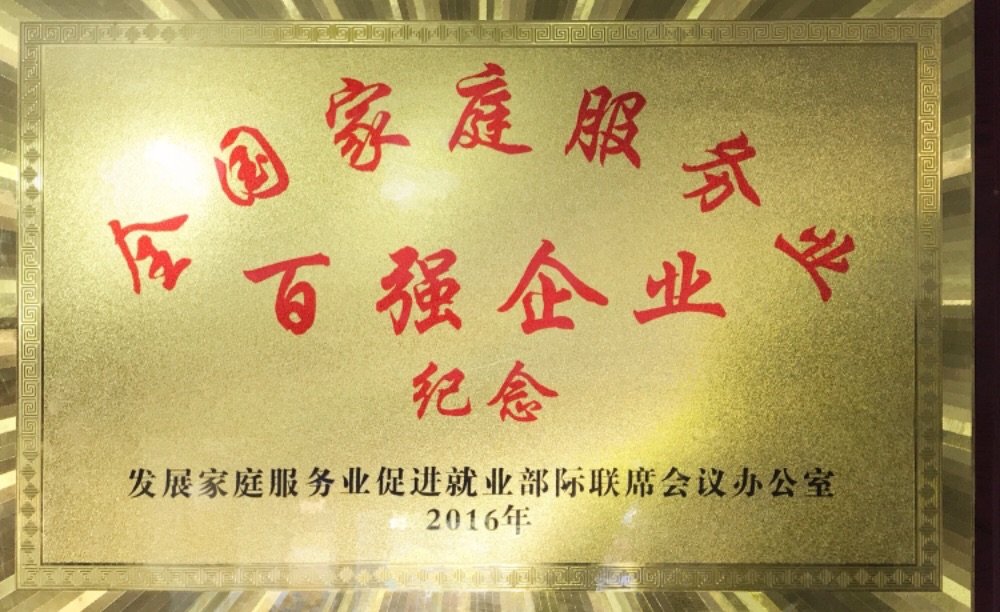 全国家庭服务业
百强企业
纪念
发展家庭服务业促进就业部际联席会议办公室
2016年